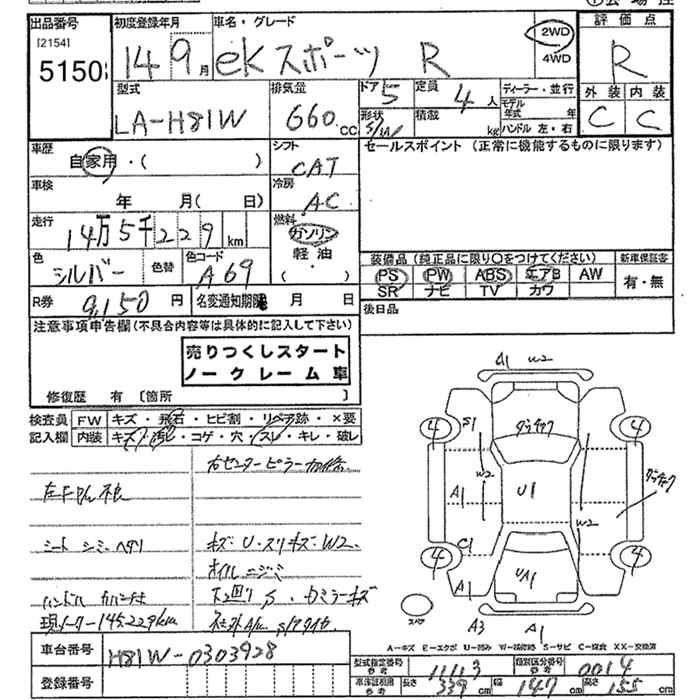 出品番号 初度登録年月 車名・グレード 評価点
[2154]
5150 14 9月 eKスポーツ R 2WD 4WD R
型式 排気量 ドア 5 定員 4人 ディーラー・並行 外装 内装
LA-H81W 660cc 形状 S/W 積載 kg モデル年式 年 C C
ハンドル 左・右
車歴 シフト セールスポイント(正常に機能するものに限ります)
自家用・( ) CAT
車検 冷房
年 月( 日) AC
走行 燃料
14万5千229km ガソリン
色 色替 色コード 軽油・
シルバー A69 ( )
装備品(純正品に限り○をつけてください) 新車保証書
PS PW ABS エアB AW 有・無
SR ナビ TV カワ
R券 9,150円 名変通知期限 月 日 後日品
注意事項申告欄(不具合内容等は具体的に記入して下さい)
売りつくしスタート
ノークレーム車
修復歴 有 [箇所 ]
検査員 FW キズ・飛石・ヒビ割・リペア跡・×要
記入欄 内装 キズ・汚レ・コゲ・穴・スレ・キレ・破レ
右センターピラー
シートシミ・ヘタリ キズ・U・スリキズ・W2.
オイルニジミ
下廻りS.
現メーター145,229km
A1 W2
S1 ダッチャク
4 4
W2
A1 U1 ダッチャク
W2
C1
4 4
A1 UA1
スペア
A3 A1
A=キズ E=エクボ U=凹み W=補修跡 S=サビ C=腐食 XX=交換済
車台番号 H81W-0303928
登録番号
型式指定番号 参考 11113 類別区分番号 参考 0014
車体証範囲 参考 長さ 339cm 幅 147cm 高さ 155cm